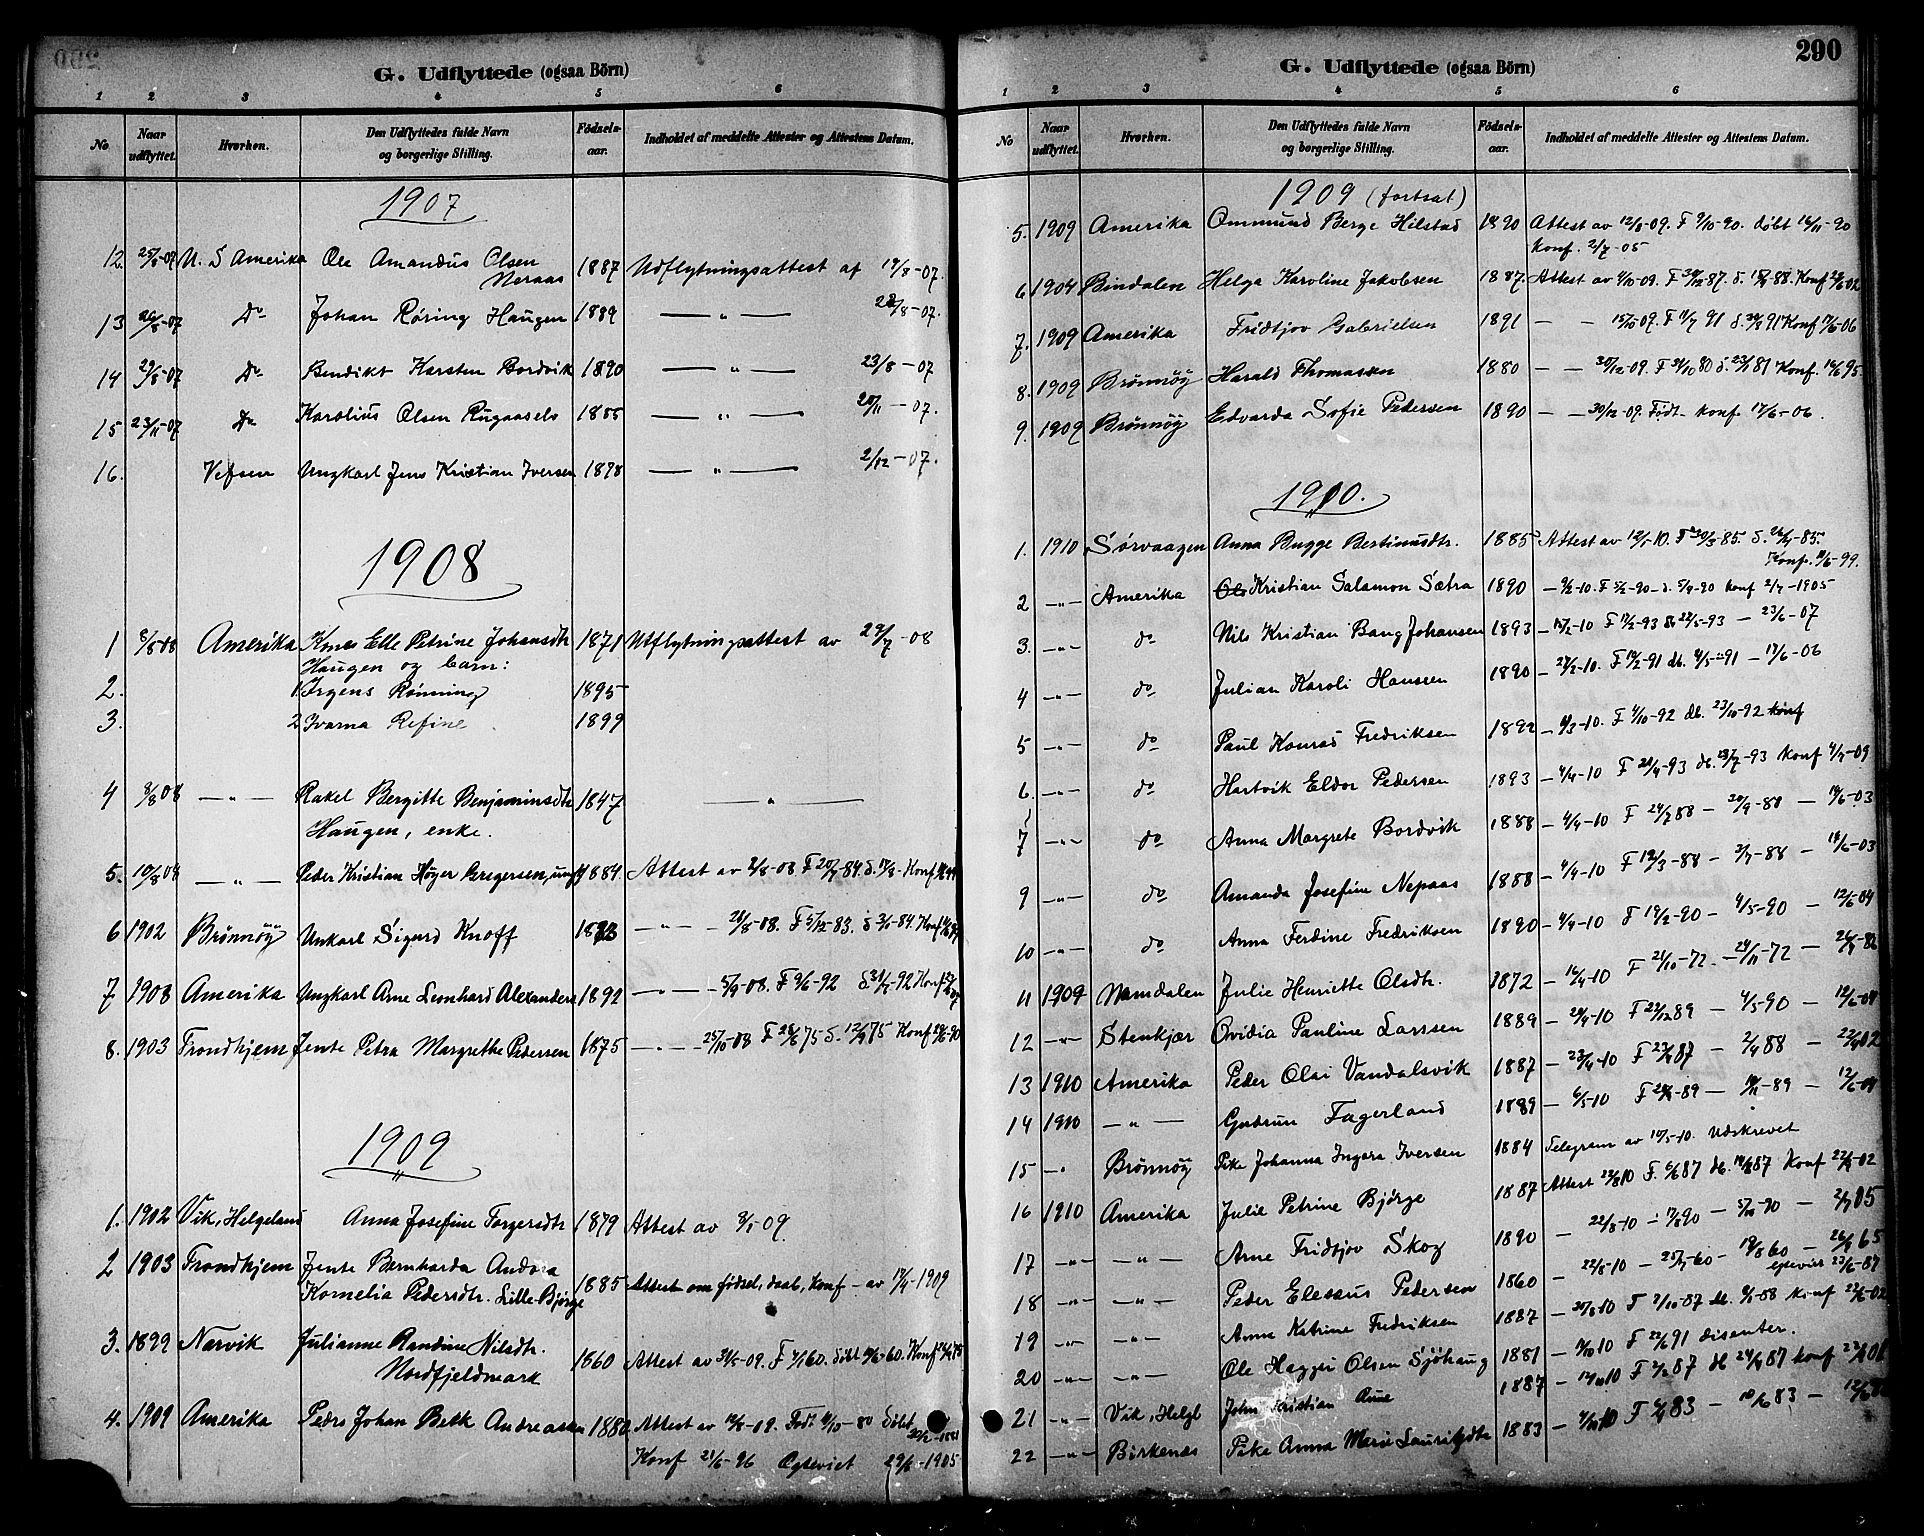 G. Udflyttede (ogsaa Börn)
1 2 3 4 5 6
No Naar udflyttet. Hvorhen. Den Udflyttedes fulde Navn og borgerlige Stilling. Födsels-aar. Indholdet af meddelte Attester og Attestens Datum.
1907
12. 25/8-07 N. S Amerika Ole Amandus Olsen 1887 Udflytningsattest af 19/8-07.
Neraas
13 26/8-07 Do Johan Röring Haugen 1889 — " — 22/8-07.
14 29/8-07 Do Bendikt Karsten Bordvik 1890 — " — 23/8-07
15 23/11-07 Do Karolius Olsen 1885 — " — 20/11-07.
16. Vefsen Ungkarl Jens Kristian Iversen 1878 — " — 2/12-07.
1908
1 8/8-08 Amerika Kone Elle Petrine Johansdtr 1871 Utflytningsattest av 29/7-08
Haugen og barn:
2. 1 Irgens Rönning 1895
3. 2 Ivarna Refine 1899
4 8/8 08 — " — Rakel Bergitte Benjaminsdtr 1847 — " —
Haugen, enke.
5. 10/8 08 — " — Peder Kristian Höyer Gregersen, ungk 1884 Attest av 2/8-08 F 20/7-84. Konf
6 1902 Brönnöy Unkarl Sigurd Knoff 1883 — " — 20/8-08. F 5/12-83. d 3/1-84. Konf
7 1908 Amerika Ungkarl Arne Leonhard Alexandersen 1892 — " — 5/9-08. F 9/6-92 d 31/7-92 Konf
8. 1903 Trondhjem Jente Petra Margrethe Pedersen 1875 — " — 25/10-08 F 28/6 75 d. 12/9 75 Konf 29/6-90
1909
1. 1902 Vik, Helgeland Anna Josefine Torgersdtr 1879 Attest av 8/1-09.
2 1903 Trondhjem Jente Bernharda Andora
Kornelia Pedersdtr. Lille-Björge 1885 Attest om födsel, daab, Konf - av 17/4-1909
3. 1899 Narvik Julianne Randine Nilsdtr.
Nordfjeldmark 1860 Attest av 31/5-09. F 4/1 60. döbt 10/6-60. Konf
4. 1909 Amerika Peder Johan Bekk Andreassen 1880 Attest av 12/8-09. Född 4/10-80 döbt
20/2-1881
Konf 21/6-96 Egteviet 29/6-1905
G. Udflyttede (ogsaa Börn)
290
1 2 3 4 5 6
No Naar udflyttet. Hvorhen. Den Udflyttedes fulde Navn og borgerlige Stilling. Födsels-aar. Indholdet af meddelte Attester og Attestens Datum.
1909 (fortsat)
5. 1909 Amerika Ommund Berge Hilstad 1890 Attest av 12/8-09. F 9/10-90. döbt 16/11-90
Konf. 2/7-05
6 1904 Bindalen Helga Karoline Jakobsen 1887. Attest av 4/10-09. F 30/12-87. d. 15/4-88. Konf 29/6 02
7. 1909 Amerika Fridtjov Gabrielsen 1891 — — 15/10 09. F 11/7 91 d. 30/8 91 Konf 17/6-06
8. 1909 Brönnöy Harald Thomassen 1880 — — 30/12-09. F 21/10 80 d. 23/1 81 Konf. 16/6 95
9. 1909 Brönnöy Edvarda Sofie Pedersen 1890 — — 30/12-09. Födt Konf. 17/6-06.
1910.
1. 1910 Sörvaagen Anna Bugge Bertinusdtr. 1885 Attest av 12/1-10. F 30/3-85. d. 26/4-85.
Konf. 11/6-99.
2 — " — Amerika Kristian Salamon Sætra 1890 — 9/2-10. F 5/2-90 - d. 5/4-90 Konf 2/7-1905
3. — " — do Nils Kristian Bang Johansen 1893 — 15/2-10 F 17/2-93 db 22/5-93 — 23/6-07
4 — " — do Julian Karoli Hansen 1890 — 27/2-10. F 19/2-91 db. 4/5-91 — 17/6-06
5 — " — do Paul Konrad Fredriksen 1892 — 4/3-10. F 4/10-92 db. 23/10-92 konf
6. — " — do Hartvik Eldor Pedersen 1893 — 4/4-10 F 20/4-93 db. 23/7-93 Konf 4/7-09
7 — " — do Anna Margrete Bordvik 1888 — 4/4-10 F 24/7 88 — 20/9-88 — 14/6-03
9 — " — do Amanda Josefine Nepaas 1888 — 4/4-10 F 12/3-88 — 2/7-88 — 14/6-03
10 — " — do Anna Ferdine Fredriksen 1890 — 4/4-10 F 19/2-90 — 4/5-90 — 12/6-04
11 1909 Namdalen Julie Henriette Olsdtr. 1872 — 16/4-10 F 21/10-72. — 24/11-72 —
12 — " — Stenkjær Ovidia Pauline Larssen 1889 — 20/4-10 F 22/12 89 — 4/5-90 — 12/6-04
13 1910 Amerika Peder Olai Vandalsvik 1887 — 23/4-10 F 23/9 87 — 2/4 88 —
14 1910 — " — Gudrun Fagerland 1889 — 6/5-10 — 12/6-04
15 — " Brönnöy Pike Johanna Ingara Iversen 1884 Telegram av 10/5-10. Udskrevet
16 1910 Amerika Julie Petrine Björge 1887 Attest 22/8 10 F. 6/6 87 db. 14/8 87 Konf
17 — " — — " — Arne Fridtjov Skog 1890 — 22/8-10
18 — " — — " — Peder Elesæus Pedersen 1860 — 22/8-10 — 25/7-60 — 19/8 60 — 26/9 65
egteviet 23/6-87
19 — " — — " — Anna Katrine Fredriksen 1887 — 20/8 10 F 2/10-87 db. 8/1-88 Konf 22/6-02
20 — " — — " — Ole Olsen Sjöhaug 1881 — F 22/6 91 disenter.
21 — " — Vik, Helgl John Kristian 1887 — F 2/2 87 db 24/4 87 Konf
22 — " — Birkenes Pike Anna Marie Lauritzdtr 1883 — 10/6 83 —